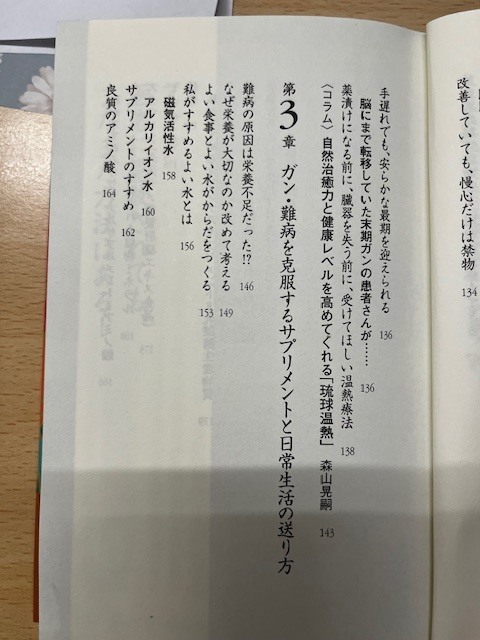 改善していても、慢心だけは禁物 134
手遅れでも、安らかな最期を迎えられる 136
脳にまで転移していた末期ガンの患者さんが…… 136
薬漬けになる前に、臓器を失う前に、受けてほしい温熱療法 138
〈コラム〉自然治癒力と健康レベルを高めてくれる「琉球温熱」 森山晃嗣 143
第3章 ガン・難病を克服するサプリメントと日常生活の送り方
難病の原因は栄養不足だった!? 146
なぜ栄養が大切なのか改めて考える 149
よい食事とよい水がからだをつくる 153
私がすすめるよい水とは 156
磁気活性水 158
アルカリイオン水 160
サプリメントのすすめ 162
良質のアミノ酸 164